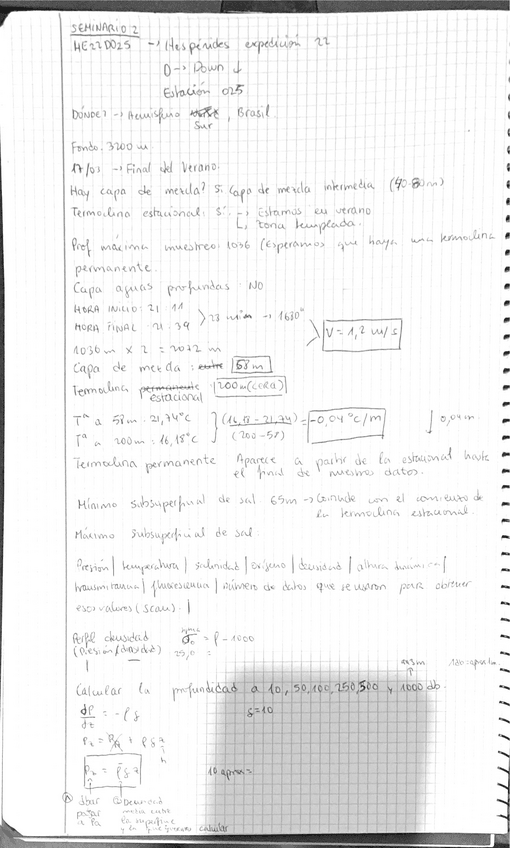 SEMINARIO 2
HE22D025 → Hespérides expedición 22
D → Down ↓
Estación 025
DÓNDE? → Hemisferio Sur, Brasil
Fondo: 3200 m.
17/03 → Final del verano.
Hay capa de mezcla? Sí: Capa de mezcla intermedia (40-80m)
Termoclina estacional: Sí → Estamos en verano
↳ zona templada.
Prof máxima muestreo: 1036 (Esperamos que haya una termoclina
permanente.
Capa aguas profundas: NO
HORA INICIO: 21:11
HORA FINAL: 21:39
28 min → 1680"
V = 1,2 m/s
1036 m x 2 = 2072 m
Capa de mezcla: 58 m
Termoclina estacional: 200m (CORA)
Tª a 58m: 21,74°C
Tª a 200m: 16,18°C
(16,18-21,74) / (200-58) = -0,04°C/m
↓ 0,04m
Termoclina permanente: Aparece a partir de la estacional hasta
el final de nuestros datos.
Mínimo subsuperficial de sal: 65m → Coincide con el comienzo de
la termoclina estacional.
Máximo subsuperficial de sal:
Presión | temperatura | salinidad | oxígeno | densidad | altura dinámica |
transmitancia | fluorescencia | número de datos que se usaron para obtener
esos valores (scan). |
Perfil densidad
(Presión/densidad)
σ = ρ - 1000
25,0 =
Calcular la profundidad a 10, 50, 100, 250, 500 y 1000 db.
dP/dz = -ρg
g=10
Pz = ρ g z
10 aprox =
dbar
pasar
a Pa
Densidad
media entre
la superficie
calcular